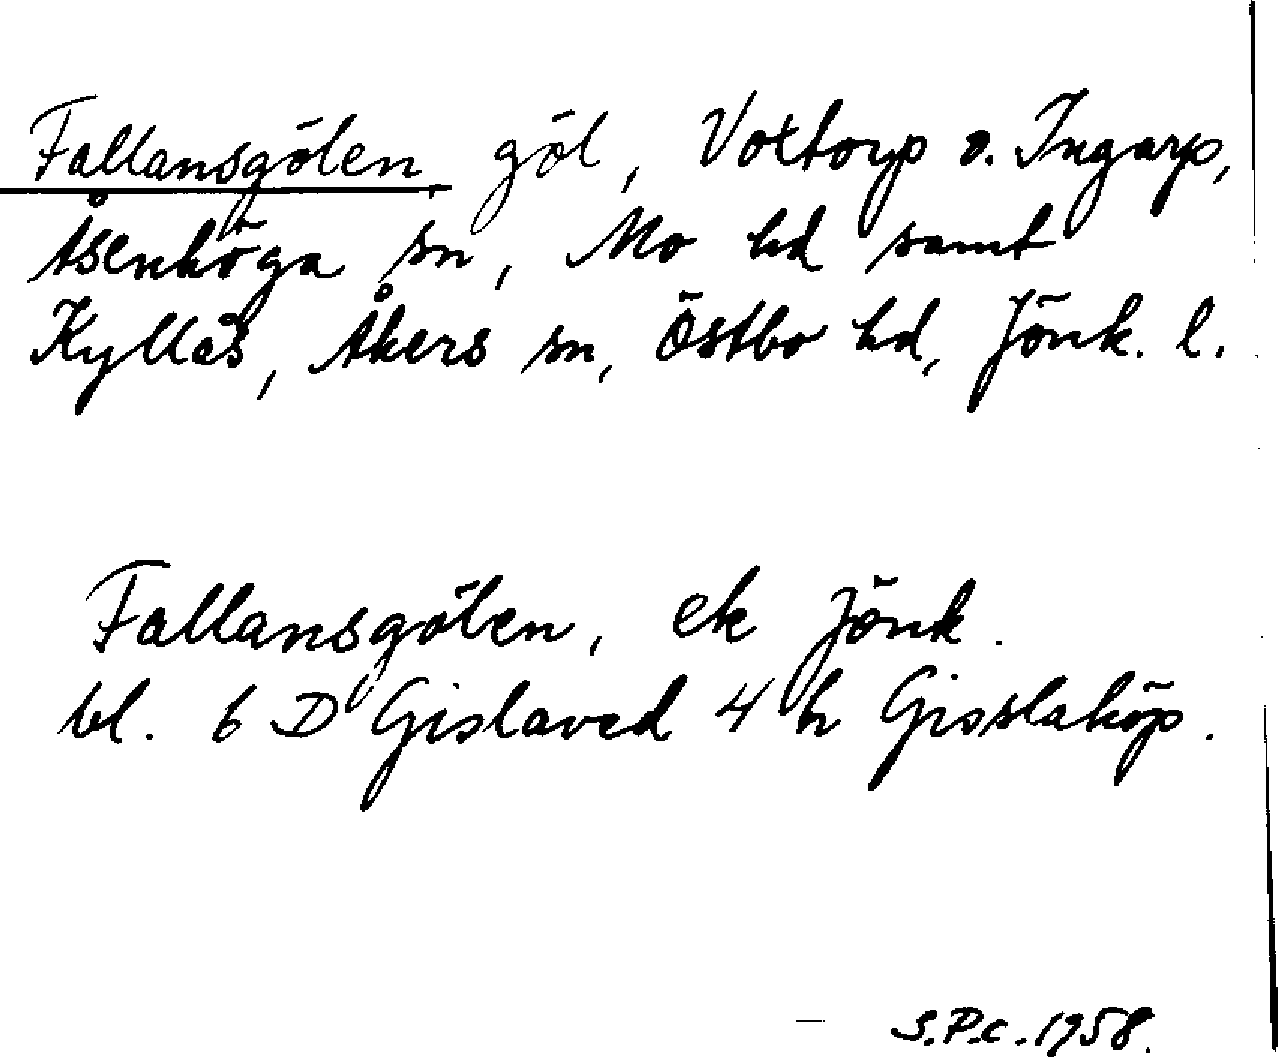 Fallansgölen, göl, Vottorp o. Ingarp,
Åsenhöga sn, Mo hd samt
Kyllås, Åkers sn, Östbo hd, Jönk. l.
Fallansgölen, ek Jönk.
bl. 6 D Gislaved 4 h Gisslaköp.
– S.P.c. 1958.